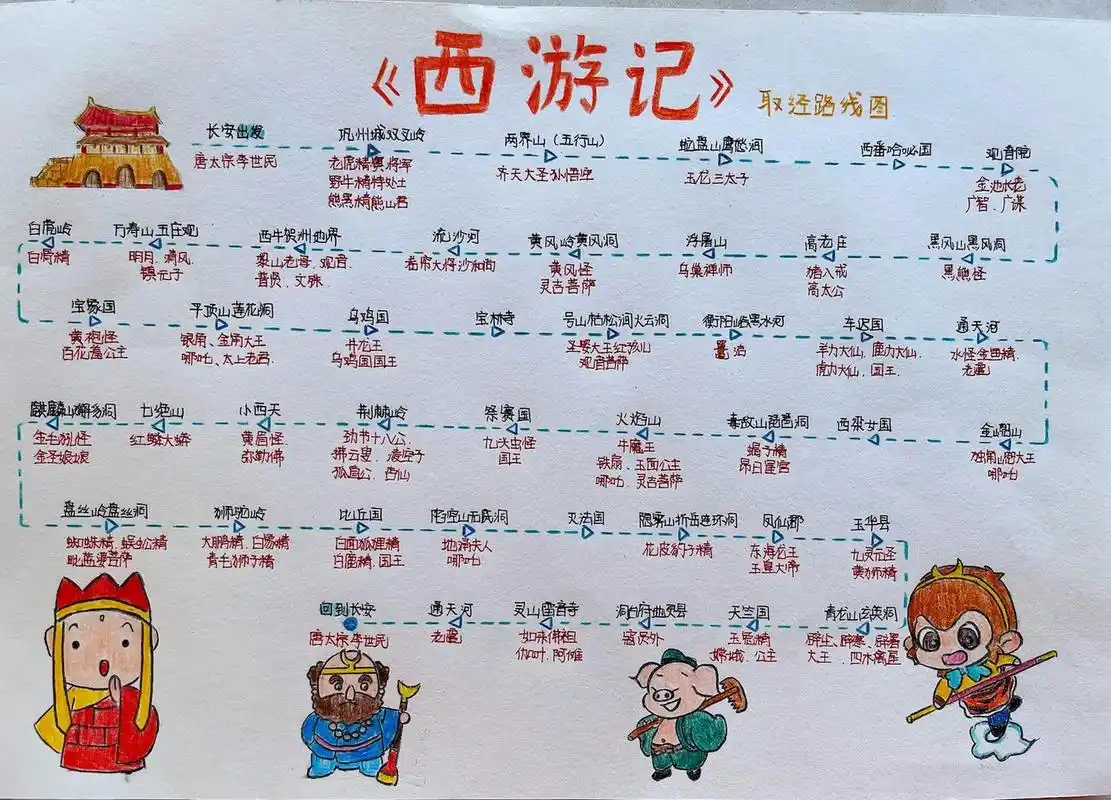 《西游记》
取经路线图
长安出发 巩州城双叉岭 两界山（五行山） 蛇盘山鹰愁涧 西番哈咇国 观音院
唐太宗李世民 老虎精寅将军 齐天大圣孙悟空 玉龙三太子 金池长老
野牛精特处士 广智、广谋
熊罴精熊山君
白虎岭 万寿山五庄观 西牛贺洲地界 流沙河 黄风岭黄风洞 浮屠山 高老庄 黑风山黑风洞
白骨精 明月、清风、 梨山老母、观音、 卷帘大将沙和尚 黄风怪 乌巢禅师 猪八戒 黑熊怪
镇元子 普贤、文殊 灵吉菩萨 高太公
宝象国 平顶山莲花洞 乌鸡国 宝林寺 号山枯松涧火云洞 衡阳峪黑水河 车迟国 通天河
黄袍怪 银角、金角大王 井龙王 圣婴大王红孩儿 鼍洁 羊力大仙、鹿力大仙、 水怪金鱼精、
百花羞公主 哪吒、太上老君、 乌鸡国国王 观音菩萨 虎力大仙、国王、 老鼋
麒麟山獬豸洞 七绝山 小西天 荆棘岭 祭赛国 火焰山 毒敌山琵琶洞 西梁女国 金山
金毛犼怪 红鳞大蟒 黄眉怪、 劲节十八公、 九头虫怪 牛魔王 蝎子精 独角兕大王
金圣娘娘 弥勒佛 拂云叟、凌空子 国王 铁扇、玉面公主 昴日星官 哪吒
孤直公、杏仙 哪吒、灵吉菩萨
盘丝岭盘丝洞 狮驼岭 比丘国 陷空山无底洞 灭法国 隐雾山折岳连环洞 凤仙郡 玉华县
蜘蛛精、蜈蚣精 大鹏精、白象精 白面狐狸精 地涌夫人 花皮豹子精 东海龙王 九灵元圣
毗蓝婆菩萨 青毛狮子精 白鹿精、国王 哪吒 玉皇大帝 黄狮精
回到长安 通天河 灵山雷音寺 铜台府地灵县 天竺国 青龙山玄英洞
唐太宗李世民 老鼋 如来佛祖 寇员外 玉兔精 辟尘、辟寒、辟暑
伽叶、阿傩 嫦娥、公主 大王、四木禽星